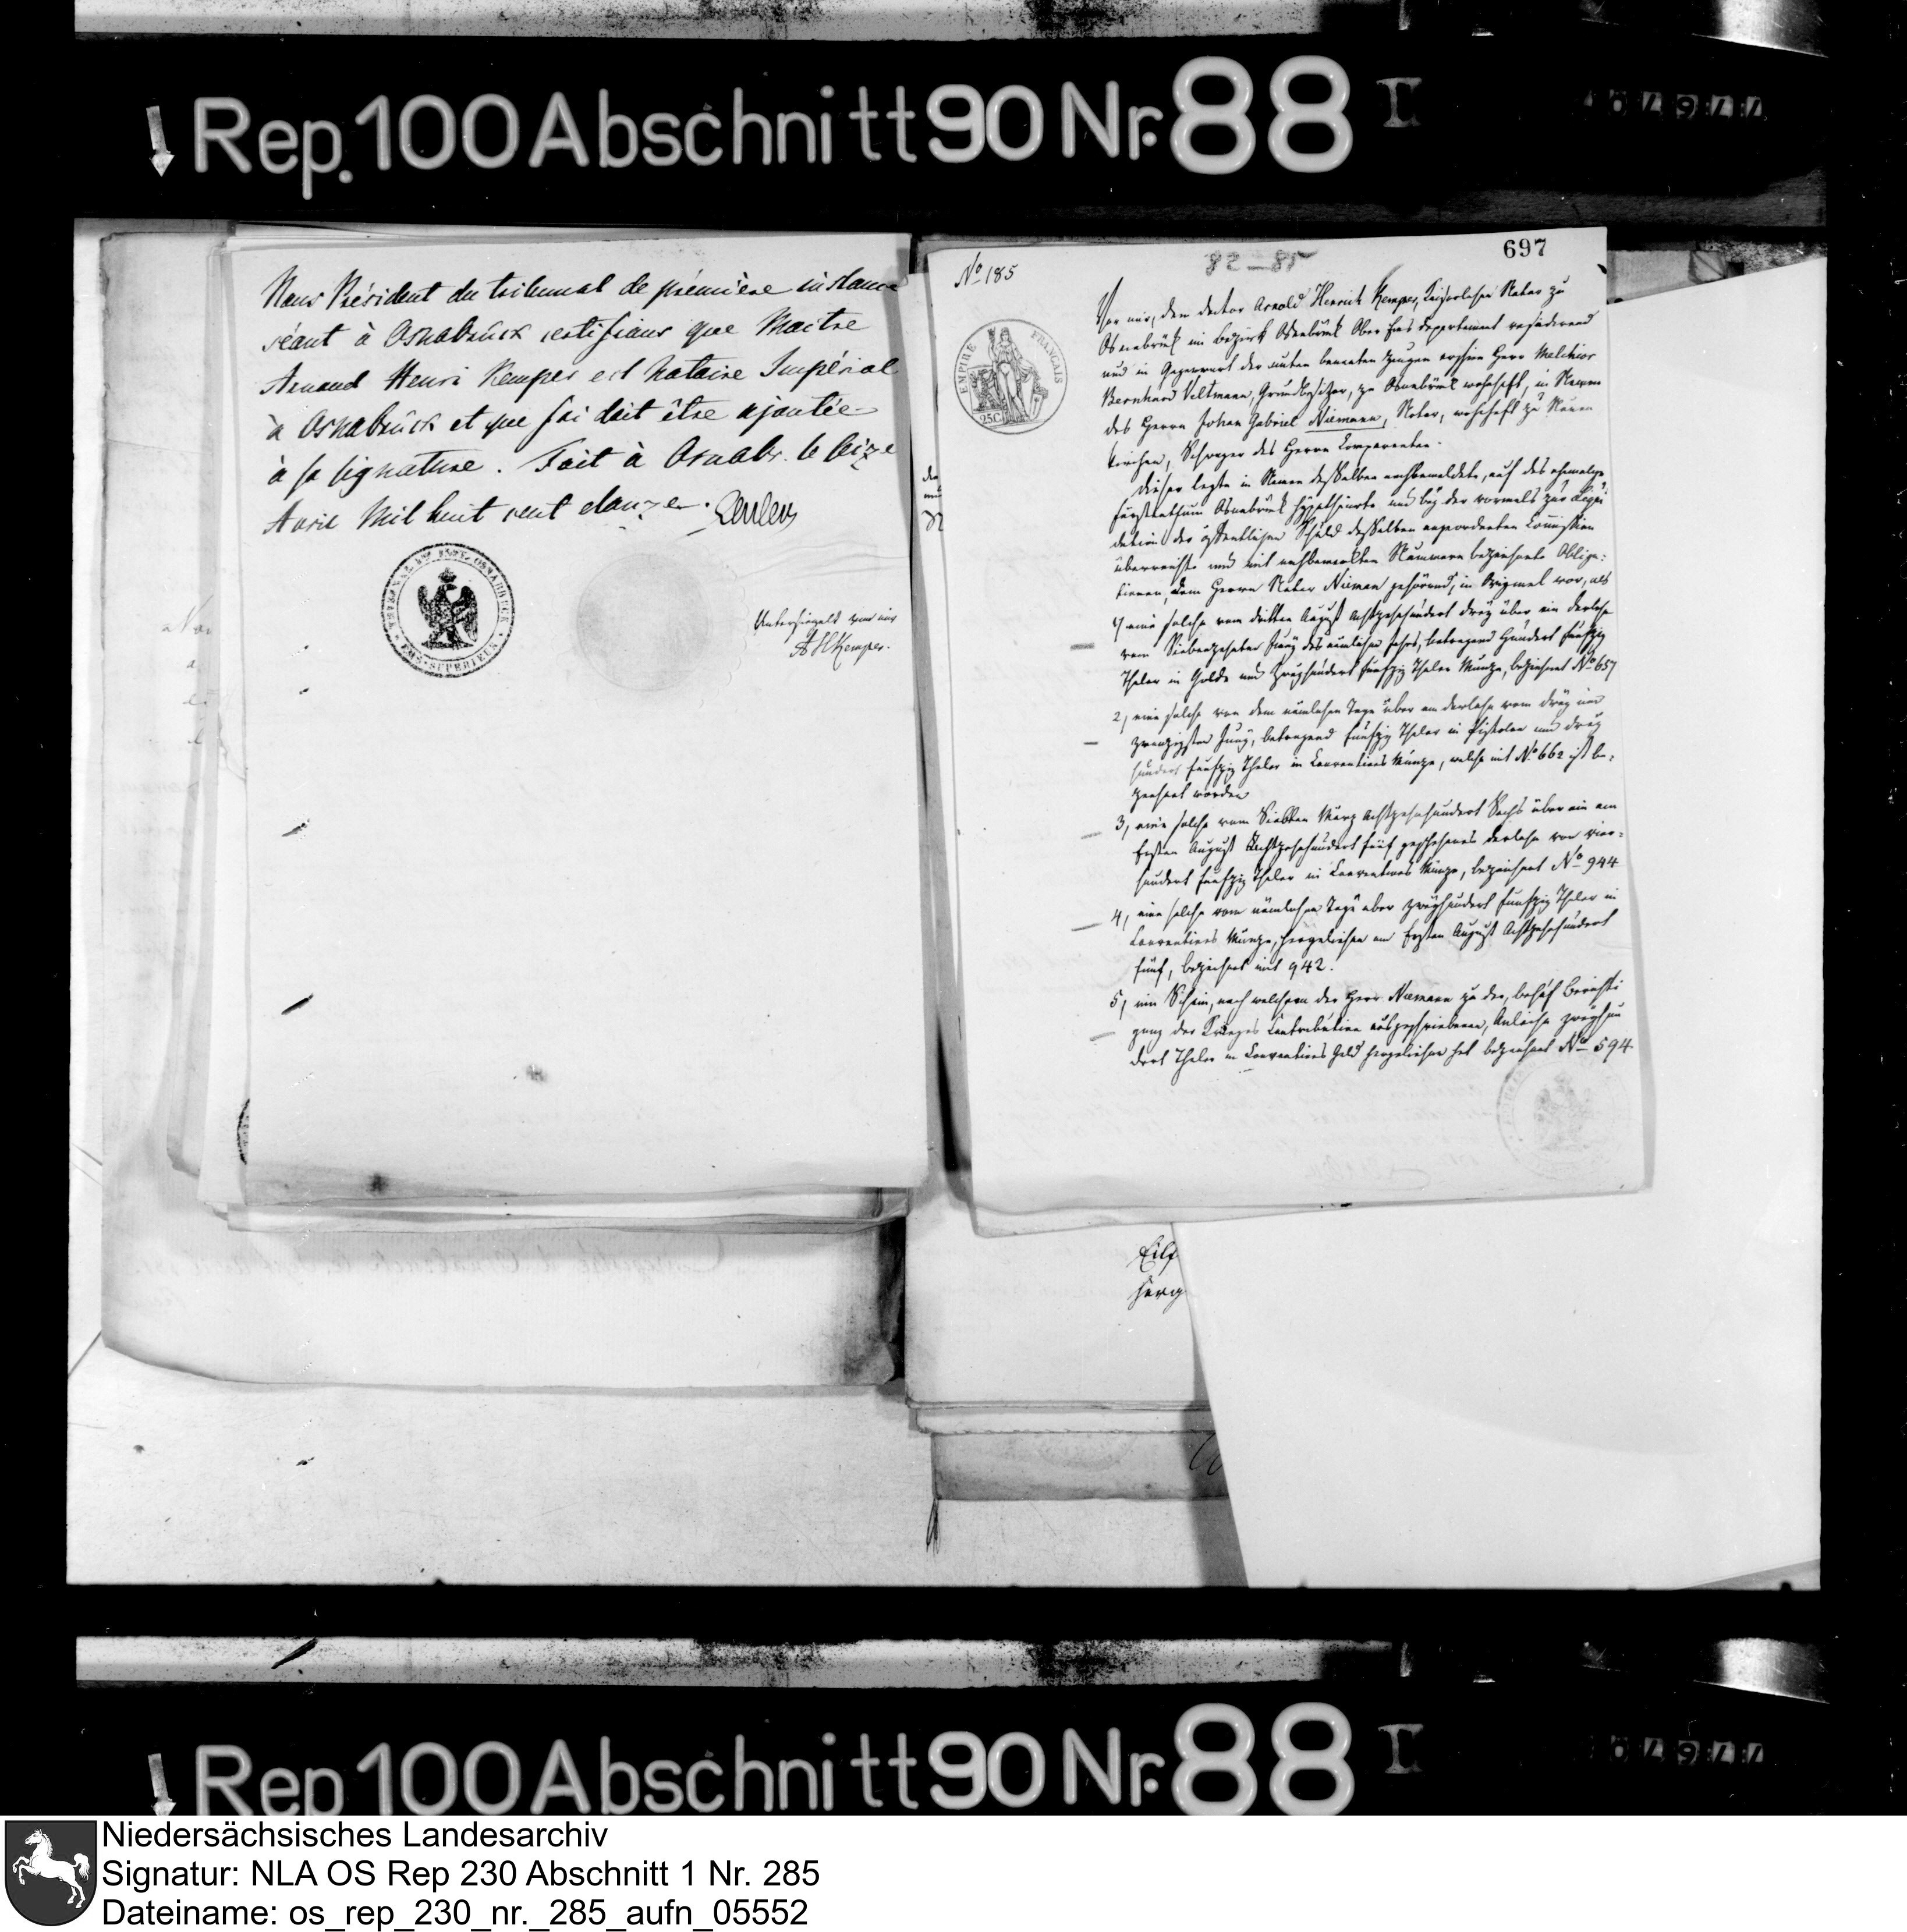 Rep. 100 Abschnitt 90 Nr. 88 I
Nous Président du tribunal de première instance
séant à Osnabrück certifions que Maitre
Arnaud Henri Kemper est Notaire Impérial
à Osnabrück et que foi doit être ajoutée
à sa signature. Fait à Osnabr. le seize
Avril Mil huit cent douze.
TRIBUNAL
OSNABRUCK
EMS-SUPERIEUR
Untersiegelt von mir
AHKemper.
697
82-85
No 185
EMPIRE FRANÇAIS
25C
Vor mir, dem doctor Arnold Henrich Kemper, Kaiserlichen Notar zu
Osnabrück im Bezirk Osnabrück Ober Ems Departement residirend
und in Gegenwart der unten benanten Zeugen erschien Herr Melchior
Bernhard Veltmann, Grundbesitzer, zu Osnabrück wohnhaft, in Namen
des Herrn Johan Gabriel Niemann, Notar, wohnhaft zu Neuen
kirchen, Schwager des Herrn Comparenten.
Dieser legte in Namen desselben nachbemeldete, auf das ehemalige
Fürstenthum Osnabrück hypothecirte und bey der vormals zur Liqui
dation der öffentlichen Schuld desselben angeordneten Commission
überreichte und mit nachbemerkten Nummern bezeichnete Obliga:
tionen, dem Herrn Notar Nieman gehörend, in Original vor, als
1) eine solche vom dritten August Achtzehnhundert drey über ein Darlehn
vom Siebenzehnten Juny des nämlichen Jahrs, betragend Hundert funfzig
Thaler in Golde und Zweyhundert funfzig Thaler Münze, bezeichnet No 657
2, eine solche von dem nämlichen Tage über ein Darlehn vom drey und
zwanzigsten Juny, betragend funfzig Thaler in Pistolen und drey
hundert funfzig Thaler in Conventions Münze, welche mit No 662 ist be-
zeichnet worden
3, eine solche vom Siebten März Achtzehnhundert Sechs über ein am
Ersten August Achtzehnhundert fünf geschehenes Darlehn von vier-
hundert funfzig Thaler in Conventions Münze, bezeichnet No 944
4, eine solche vom nämlichen Tage über zweyhundert funfzig Thaler in
Conventions Münze, hergeliehen am Ersten August Achtzehnhundert
fünf, bezeichnet mit 942.
5, ein Schein, nach welchem der Herr Niemann zu der, behuf Berichti
gung der Krieges Contribution ausgeschriebenen, Anleihe zweyhun
dert Thaler in Conventions Geld hergeliehen hat bezeichnet No 594
Eilf
herg
Rep 100 Abschnitt 90 Nr. 88 I
Niedersächsisches Landesarchiv
Signatur: NLA OS Rep 230 Abschnitt 1 Nr. 285
Dateiname: os_rep_230_nr._285_aufn_05552